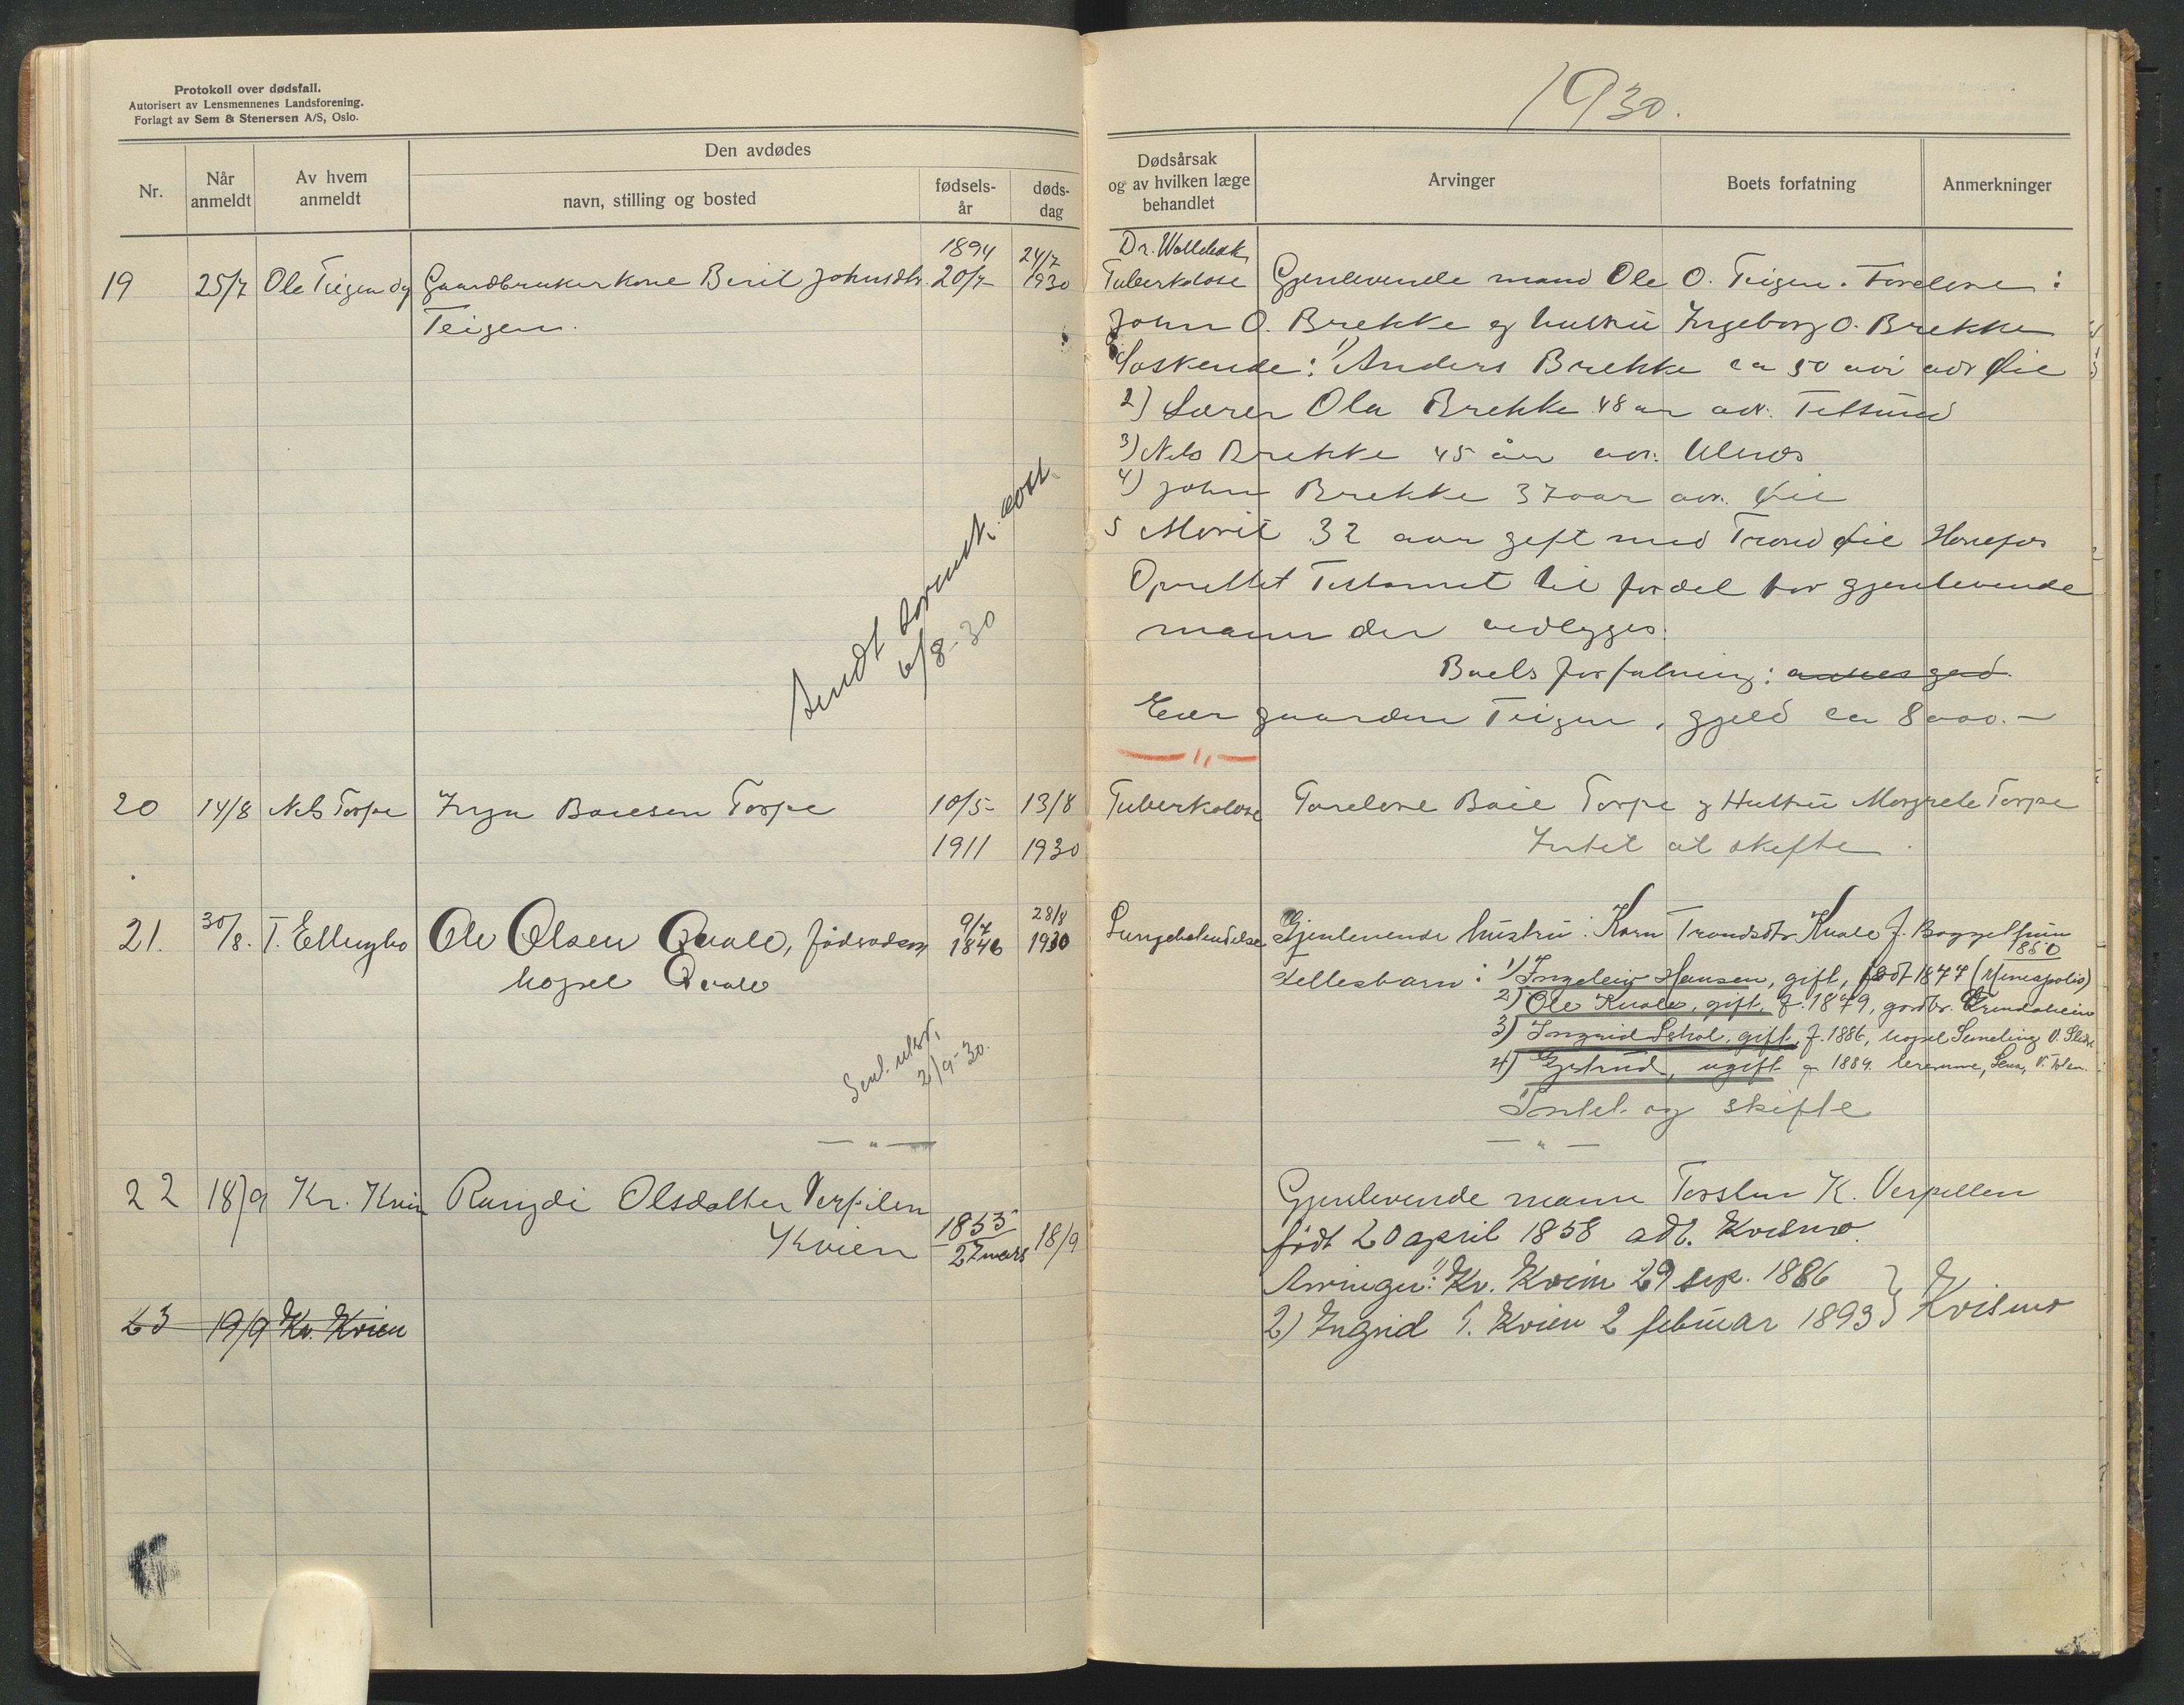 Protokoll over dødsfall.
Autorisert av Lensmennenes Landsforening.
Forlagt av Sem & Stenersen A/S, Oslo.
Nr.
Når anmeldt
Av hvem anmeldt
Den avdødes
navn, stilling og bosted
fødsels-år
døds-dag
19 25/7 Ole Teigen Gaardbrukerkone Berit Johnsdtr. 1894 20/7 24/7 1930
Teigen.
Sendt 6/8-30
20 14/8 Nels Torpe Inga Boiesen Torpe 10/5- 13/8
1911 1930
21. 30/8. T. Ellingbo Ole Olsen Qvale, födraadsm 9/7 1846 28/8 1930
bopel Qvale
2/9-30.
— " —
22 18/9 Kr. Kvien Rangdi Olsdatter Verpilen
Kvien 1853 27 mars 18/9
23 19/9 Kr. Kvien
1930.
Dødsårsak og av hvilken læge behandlet
Arvinger
Boets forfatning
Anmerkninger
Dr.
Tuberkolose Gjenlevende mand Ole O. Teigen. Foreldre:
John O. Brekke og hustru Ingeborg O. Brekke
Søskende: 1) Anders Brekke ca 50 aar adr Øie
2) Lærer Ola Brekke 48 aar adr.
3) Nels Brekke 45 år adr. Ulnes
4) John Brekke 37 aar adr. Øie
5 Marit 32 aar gift med Trond Øie Hønefos
Oprettet Testament til fordel for gjenlevende
mann der vedlegges.
Boets forfatning:
Eier gaarden Teigen, gjeld ca 8000.-
— " —
Tuberkolose Foreldre Boie Torpe og Hustru Margrete Torpe
Intet at skifte.
Lungebetendelse Gjenlevende hustru: Karn Trondsdtr Kvale f.
1850
Fellesbarn: 1) Ingeleiv Hansen, gift, født 1877 (Minneapolis)
2) Ole Kvale, gift, f. 1879, gardbr. Grindaheim
3) Ingrid, gift, f. 1886, bopel V. Slidre
4) Gjertrud, ugift f. 1884.
Intet og skifte
— " —
Gjenlevende mann Torsten K. Verpellen
født 20 april 1858 adr. Kvismo.
Arvinger: 1) Kr. Kvien 29 sep. 1886
2) Ingrid T. Kvien 2 februar 1893 } Kvismo